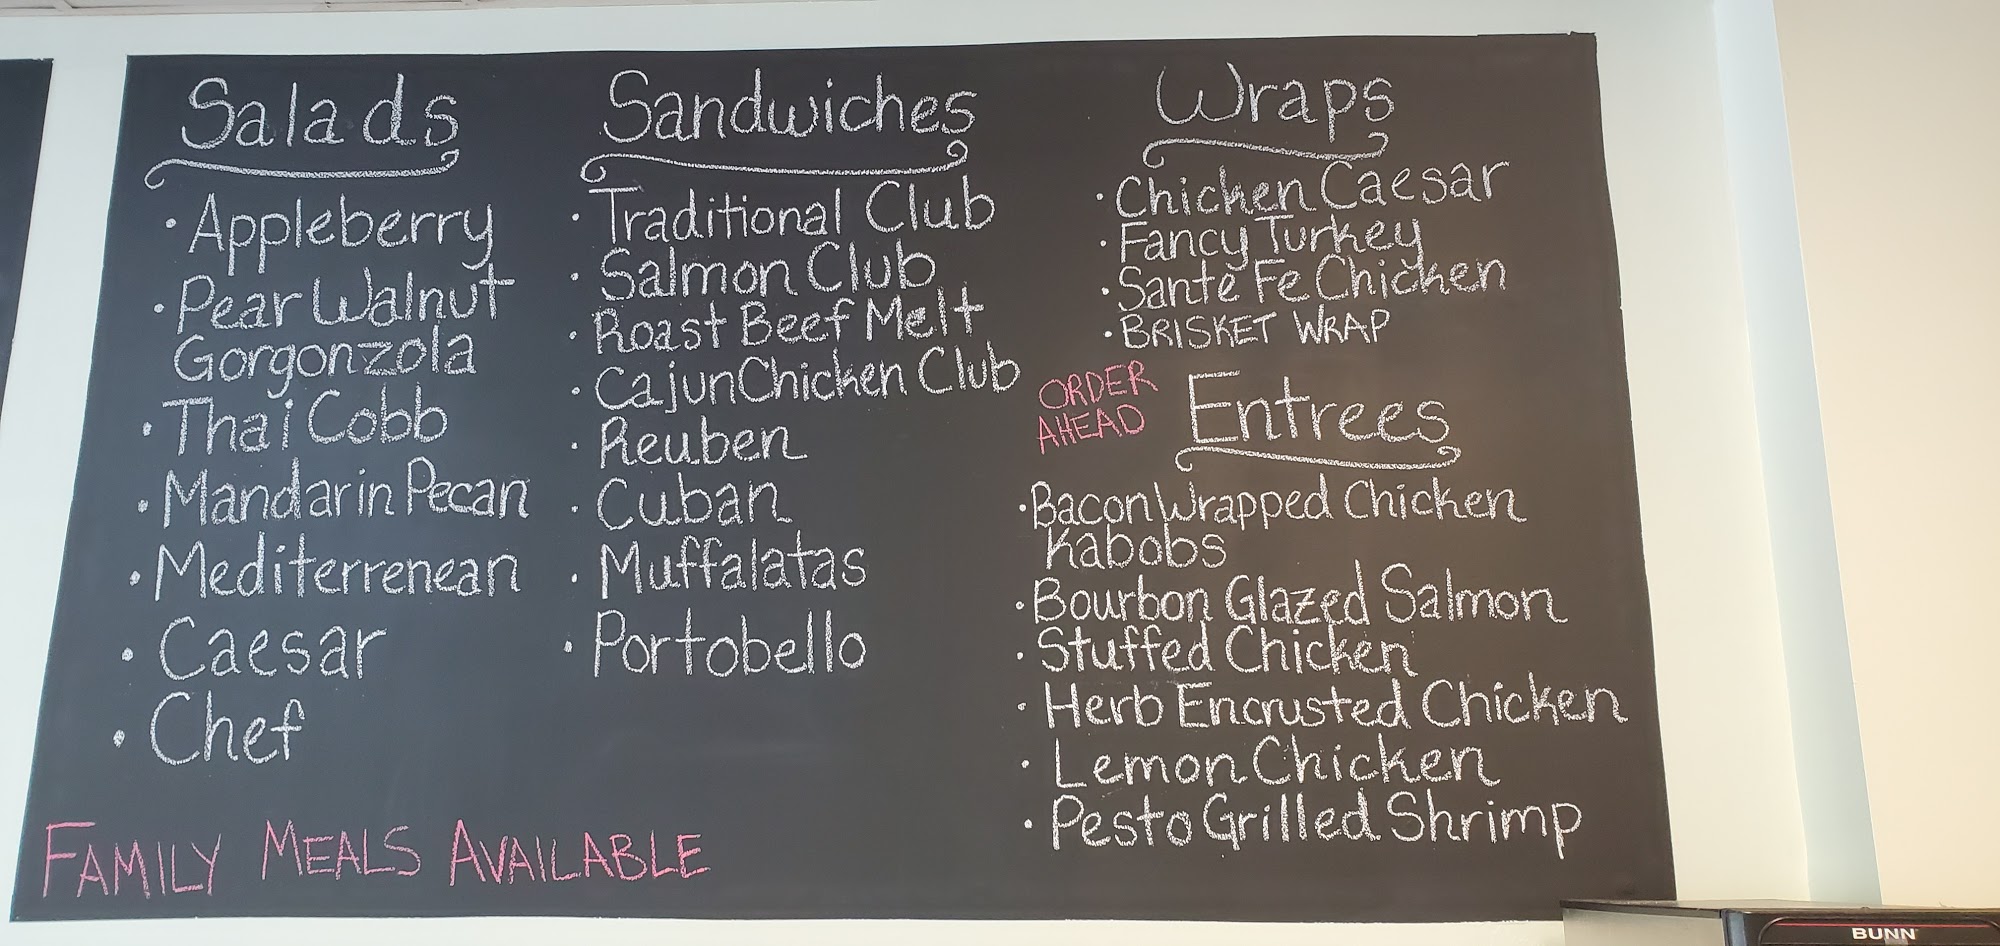 Salads
• Appleberry
• Pear Walnut
Gorgonzola
• Thai Cobb
• Mandarin Pecan
• Mediterrenean
• Caesar
• Chef
FAMILY MEALS AVAILABLE
Sandwiches
• Traditional Club
• Salmon Club
• Roast Beef Melt
• Cajun Chicken Club
• Reuben
• Cuban
• Muffalatas
• Portobello
Wraps
• Chicken Caesar
• Fancy Turkey
• Sante Fe Chicken
• BRISKET WRAP
ORDER
AHEAD
Entrees
• Bacon Wrapped Chicken
Kabobs
• Bourbon Glazed Salmon
• Stuffed Chicken
• Herb Encrusted Chicken
• Lemon Chicken
• Pesto Grilled Shrimp
BUNN